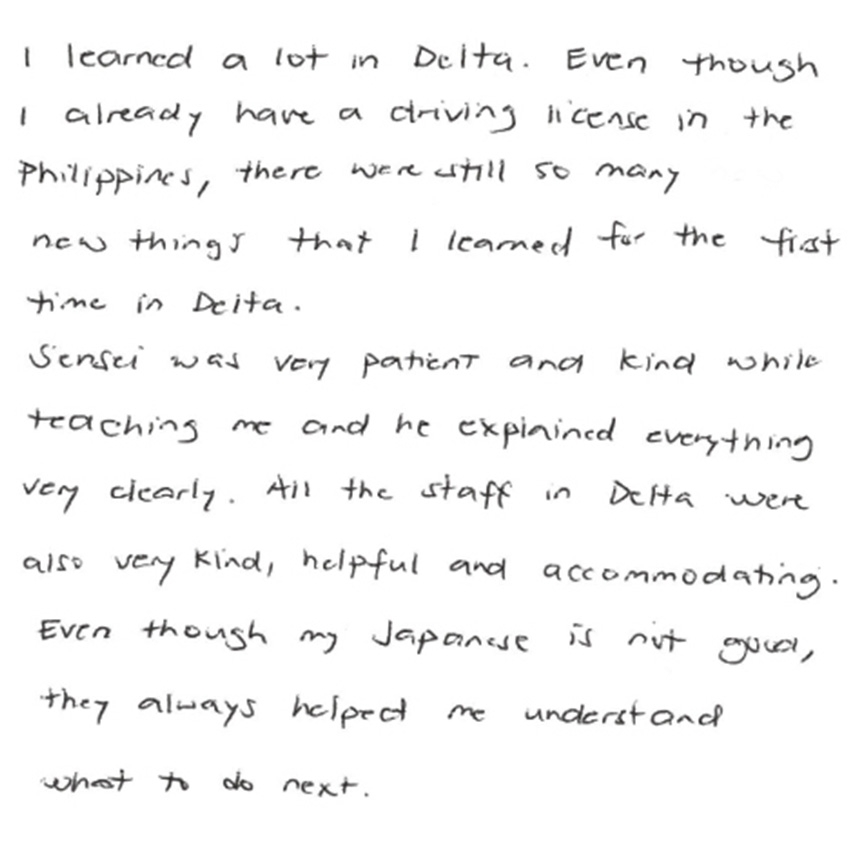 I learned a lot in Delta. Even though
I already have a driving license in the
Philippines, there were still so many
new things that I learned for the first
time in Delta.
Sensei was very patient and kind while
teaching me and he explained everything
very clearly. All the staff in Delta were
also very kind, helpful and accommodating.
Even though my Japanese is not good,
they always helped me understand
what to do next.